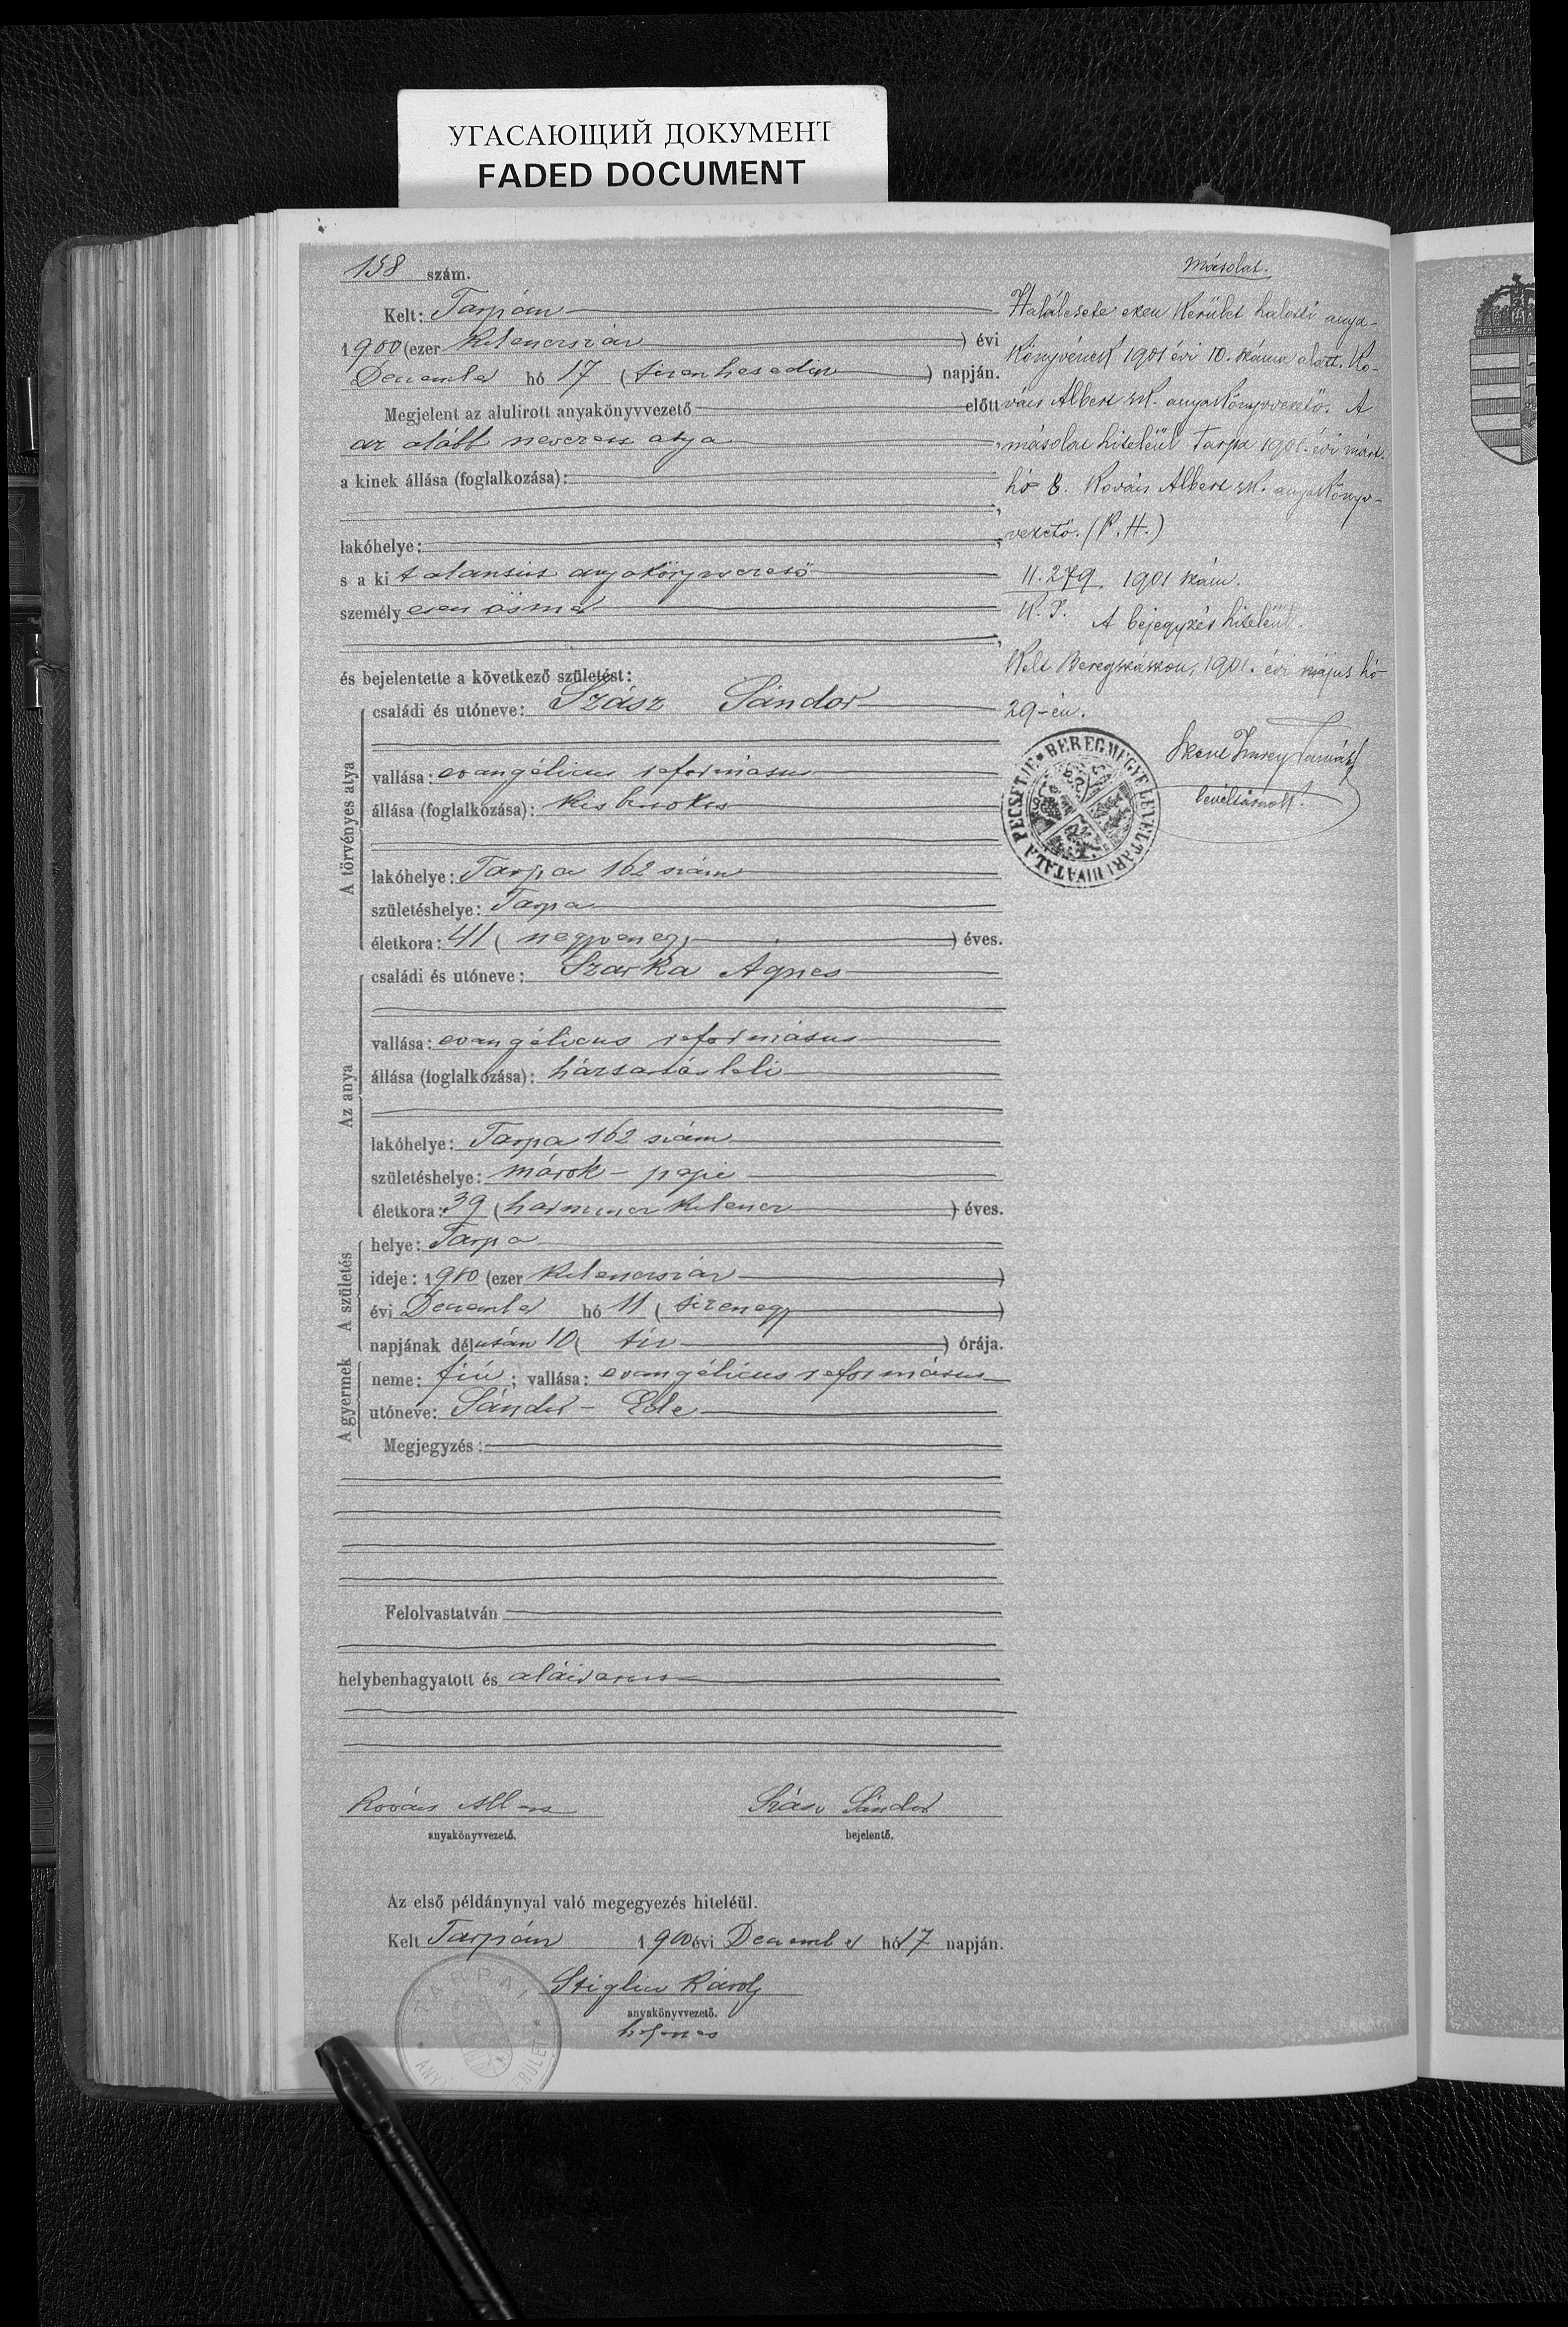 УГАСАЮЩИЙ ДОКУМЕНТ
FADED DOCUMENT
158 szám.
Kelt: Tarpán
1900 (ezer kilenczszáz ) évi
December hó 17 ( tizenhetedik ) napján.
Megjelent az alulirott anyakönyvvezető előtt
az alább nevezett atya
a kinek állása (foglalkozása):
lakóhelye:
s a kit alantirt anyakönyvvezető
személyesen ösmer
és bejelentette a következő születést:
A törvényes atya
családi és utóneve: Szász Sándor
vallása: evangélicus református
állása (foglalkozása): kisbirtokos
lakóhelye: Tarpa 162 szám
születéshelye: Tarpa
életkora: 41 ( negyvenegy ) éves.
Az anya
családi és utóneve: Szarka Ágnes
vallása: evangélicus református
állása (foglalkozása): háztartásbeli
lakóhelye: Tarpa 162 szám
születéshelye: márok-papi
életkora: 39 ( harmincz kilencz ) éves.
A születés
helye: Tarpa
ideje: 1900 (ezer kilenczszáz )
évi December hó 11 ( tizenegy )
napjának délután 10 ( tíz ) órája.
A gyermek
neme: fiú ; vallása: evangélicus református
utóneve: Sándor - Ede
Megjegyzés:
Felolvastatván
helybenhagyatott és aláiratott
Kovács Albert Szász Sándor
anyakönyvvezető. bejelentő.
Az első példánynyal való megegyezés hiteléül.
Kelt Tarpán 1900 évi December hó 17 napján.
Stiglicz Károly
anyakönyvvezető.
helyettes
TARPAI
Másolat.
Halálesete ezen kerület halotti anya-
könyvének 1901 évi 10. száma alatt. Ko-
vács Albert sk. anyakönyvvezető. A
másolat hiteléül Tarpa 1901. évi márt.
hó 8. Kovács Albert sk. anyakönyv-
vezető. (P. H.)
11.279 1901 szám.
K. I. A bejegyzés hiteléül.
Kelt Beregszászon, 1901. évi május hó
29-én.
BEREGMEGYE LEVÉLTÁRI HIVATALA PECSÉTJE
levéltárnok.